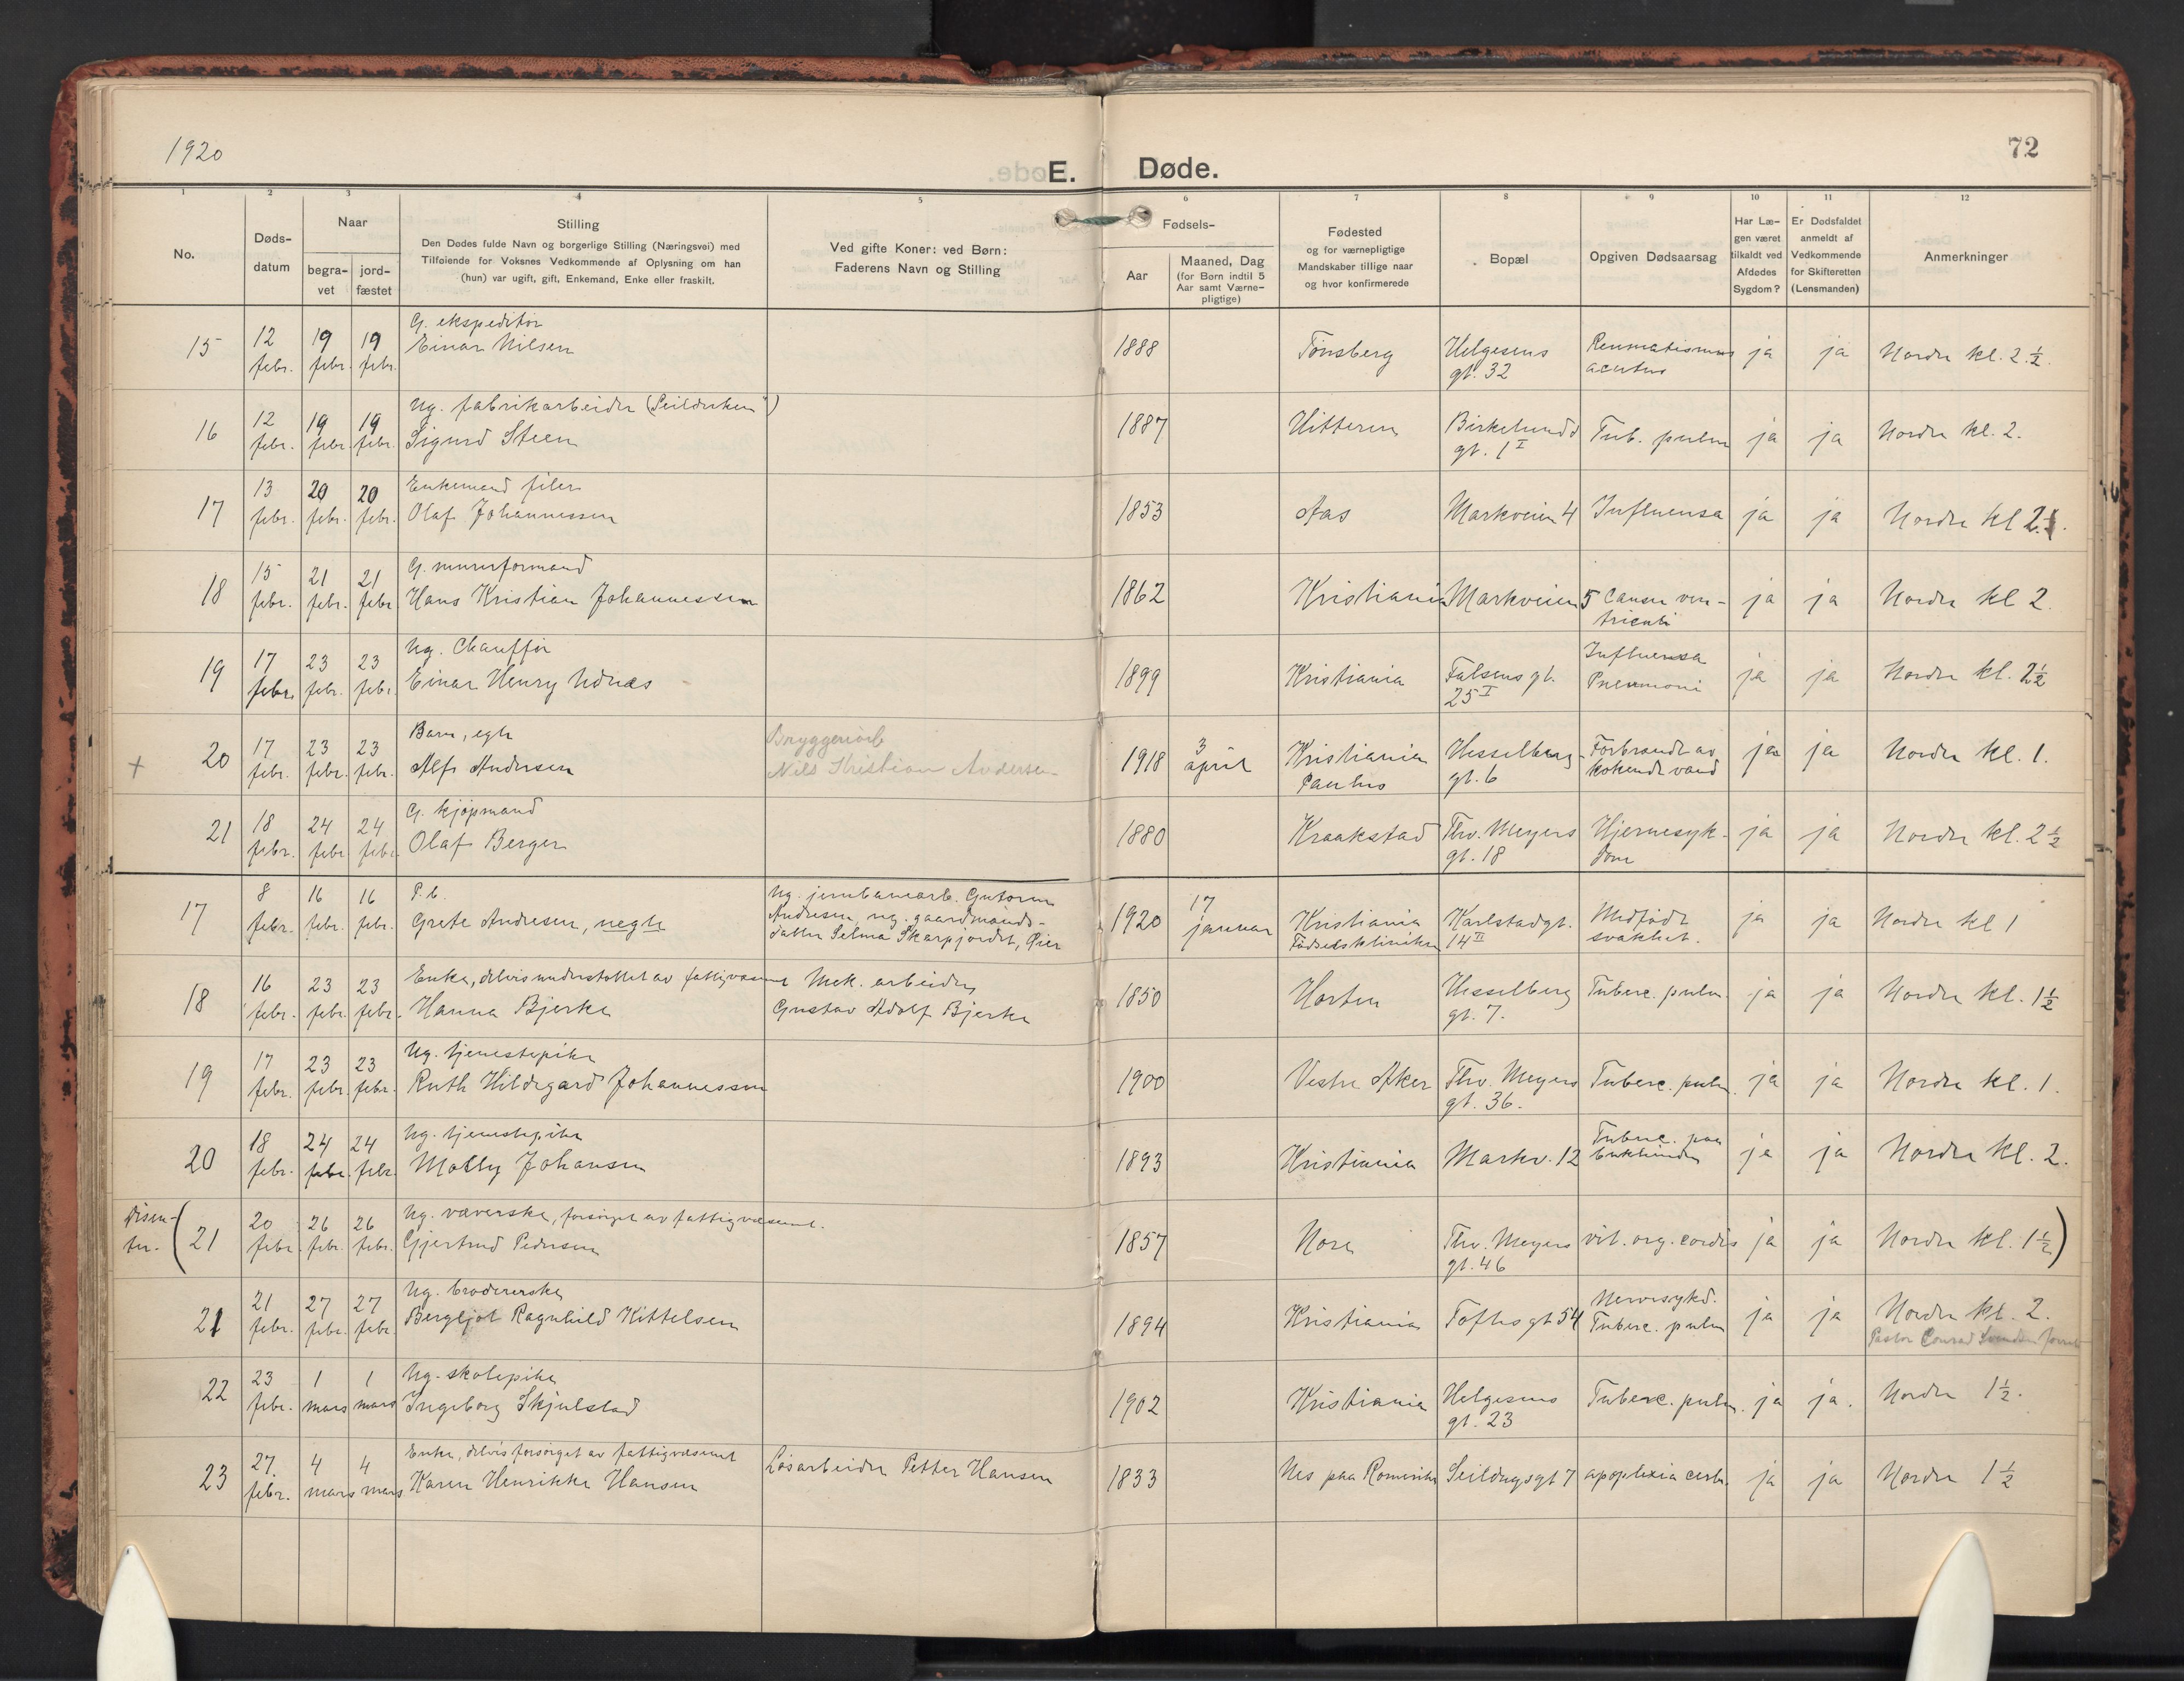 1920
E. Døde.
72
1 2 3 4 5 6 7 8 9 10 11 12
No.
Døds-
datum
Naar
begra-
vet
jord-
fæstet
Stilling
Den Dødes fulde Navn og borgerlige Stilling (Næringsvei) med
Tilføiende for Voksnes Vedkommende af Oplysning om han
(hun) var ugift, gift, Enkemand, Enke eller fraskilt.
Ved gifte Koner: ved Børn:
Faderens Navn og Stilling
Fødsels-
Aar
Maaned, Dag
(for Børn indtil 5
Aar samt Værne-
pligtige)
Fødested
og for værnepligtige
Mandskaber tillige naar
og hvor konfirmerede
Bopæl
Opgiven Dødsaarsag
Har Læ-
gen været
tilkaldt ved
Afdødes
Sygdom?
Er Dødsfaldet
anmeldt af
Vedkommende
for Skifteretten
(Lensmanden)
Anmerkninger
15 12 febr. 19 febr. 19 febr. G. ekspeditør
Einar Nilsen 1888 Tønsberg Helgesens gt. 32 Reumatismus acutus ja ja Nordre kl. 2 ½.
16 12 febr. 19 febr. 19 febr. Ug. fabrikarbeider
Sigurd Steen 1887 Hitteren Birkelunds gt. 1 I Tub. pulm ja ja Nordre kl. 2.
17 13 febr. 20 febr. 20 febr. Enkemand filer
Olaf Johannessen 1853 Aas Markveien 4 Influensa ja ja Nordre kl 2
18 15 febr. 21 febr. 21 febr G. murerformand
Hans Kristian Johannessen 1862 Kristiania Markveien 5 Cancer ventriculi ja ja Nordre kl 2.
19 17 febr. 23 febr. 23 febr. Ug. Chauffør
Einar Henry Udnæs 1899 Kristiania Falsens gt. 25 I Influensa Pneumoni ja ja Nordre kl. 2½
+ 20 17 febr. 23 febr. 23 febr. Barn, egte
Alfr Andersen Bryggeriarb
Nils Kristian Andersen 1918 3 april Kristiania Paulus Hesselberg gt. 6 Forbrændt av kokende vand ja ja Nordre kl. 1.
21 18 febr. 24 febr 24 febr. G. kjøpmand
Olaf Berger 1880 Kraakstad Thv. Meyers gt. 18 Hjernesykdom ja ja Nordre kl. 2 ½
17 8 febr. 16 febr. 16 febr. P.b.
Grete Andresen, uegte Ug. jernbanearb. Gutorm
Andresen, ug. gaardmands-
datter Selma Skarpjordet, Øier 1920 17 januar Kristiania Fødselskliniken Karlstadgt. 14 II Medfødt svakhet. ja ja Nordre kl 1
18 16 febr. 23 febr. 23 febr. Enke, delvis understøttet av fattigvæsenet
Hanna Bjerke Mek. arbeider
Gustav Adolf Bjerke 1850 Horten Hesselberg gt. 7. Tuberc. pulm. ja ja Nordre kl. 1½
19 17 febr. 23 febr 23 febr. Ug. tjenestepike
Ruth Hildegard Johannessen 1900 Vestre Aker Thv. Meyers gt. 36. Tuberc. pulm. ja ja Nordre kl. 1.
20 18 febr. 24 febr. 24 febr. Ug. tjenestepike
Molly Johansen 1893 Kristiania Markv. 12 Tuberc. paa bukhinden ja ja Nordre kl. 2.
Disen-
ter. (21 20 febr. 26 febr. 26 febr. Ug. væverske, forsørget av fattigvæsenet.
Gjertrud Pedersen 1857 Nore Thv. Meyers gt. 46 vit. org. cordis ja ja Nordre kl. 1½)
21 21 febr. 27 febr. 27 febr. Ug. brodererske
Bergljot Ragnhild Kittelsen 1894 Kristiania Toftesgt 54 Nervesykd. Tuberc. pulm ja ja Nordre kl. 2.
Pastor Conrad Svendsen
22 23 febr. 1 mars 1 mars Ug. skolepike
Ingeborg Skjulstad 1902 Kristiania Helgesens gt. 23 Tuberc. pulm. ja ja. Nordre 1½.
23 27. febr. 4 mars 4 mars Enke, delvis forsørget av fattigvæsenet
Karen Henrikke Hansen Løsarbeider Petter Hansen 1833 Nes paa Romerike Seildugsgt 7 apoplexia cerb. ja ja Nordre 1½